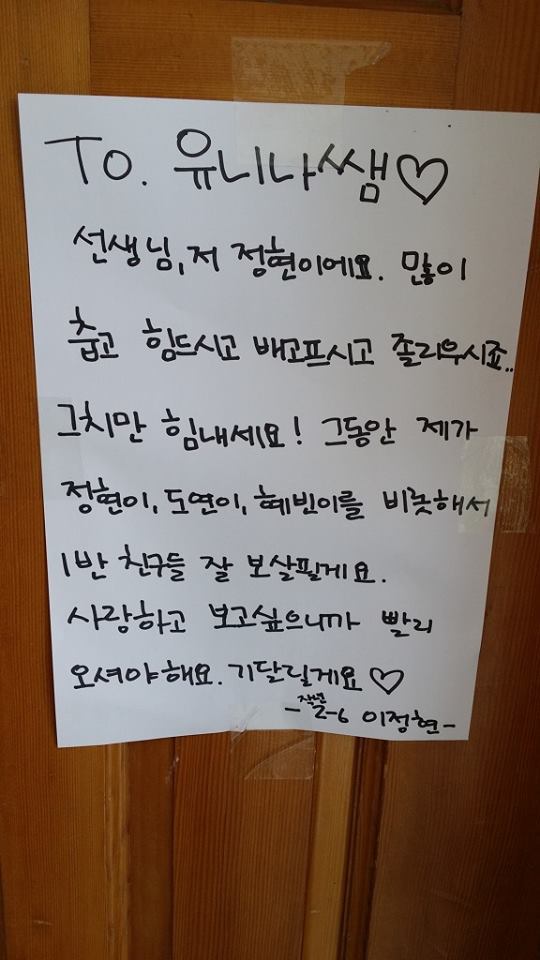 To. 유니나쌤♡
선생님, 저 정현이에요. 많이
춥고 힘드시고 배고프시고 졸리우시죠..
그치만 힘내세요! 그동안 제가
정현이, 도연이, 혜빈이를 비롯해서
1반 친구들 잘 보살필게요.
사랑하고 보고싶으니까 빨리
오셔야해요. 기달릴게요♡
작년
-2-6 이정현-